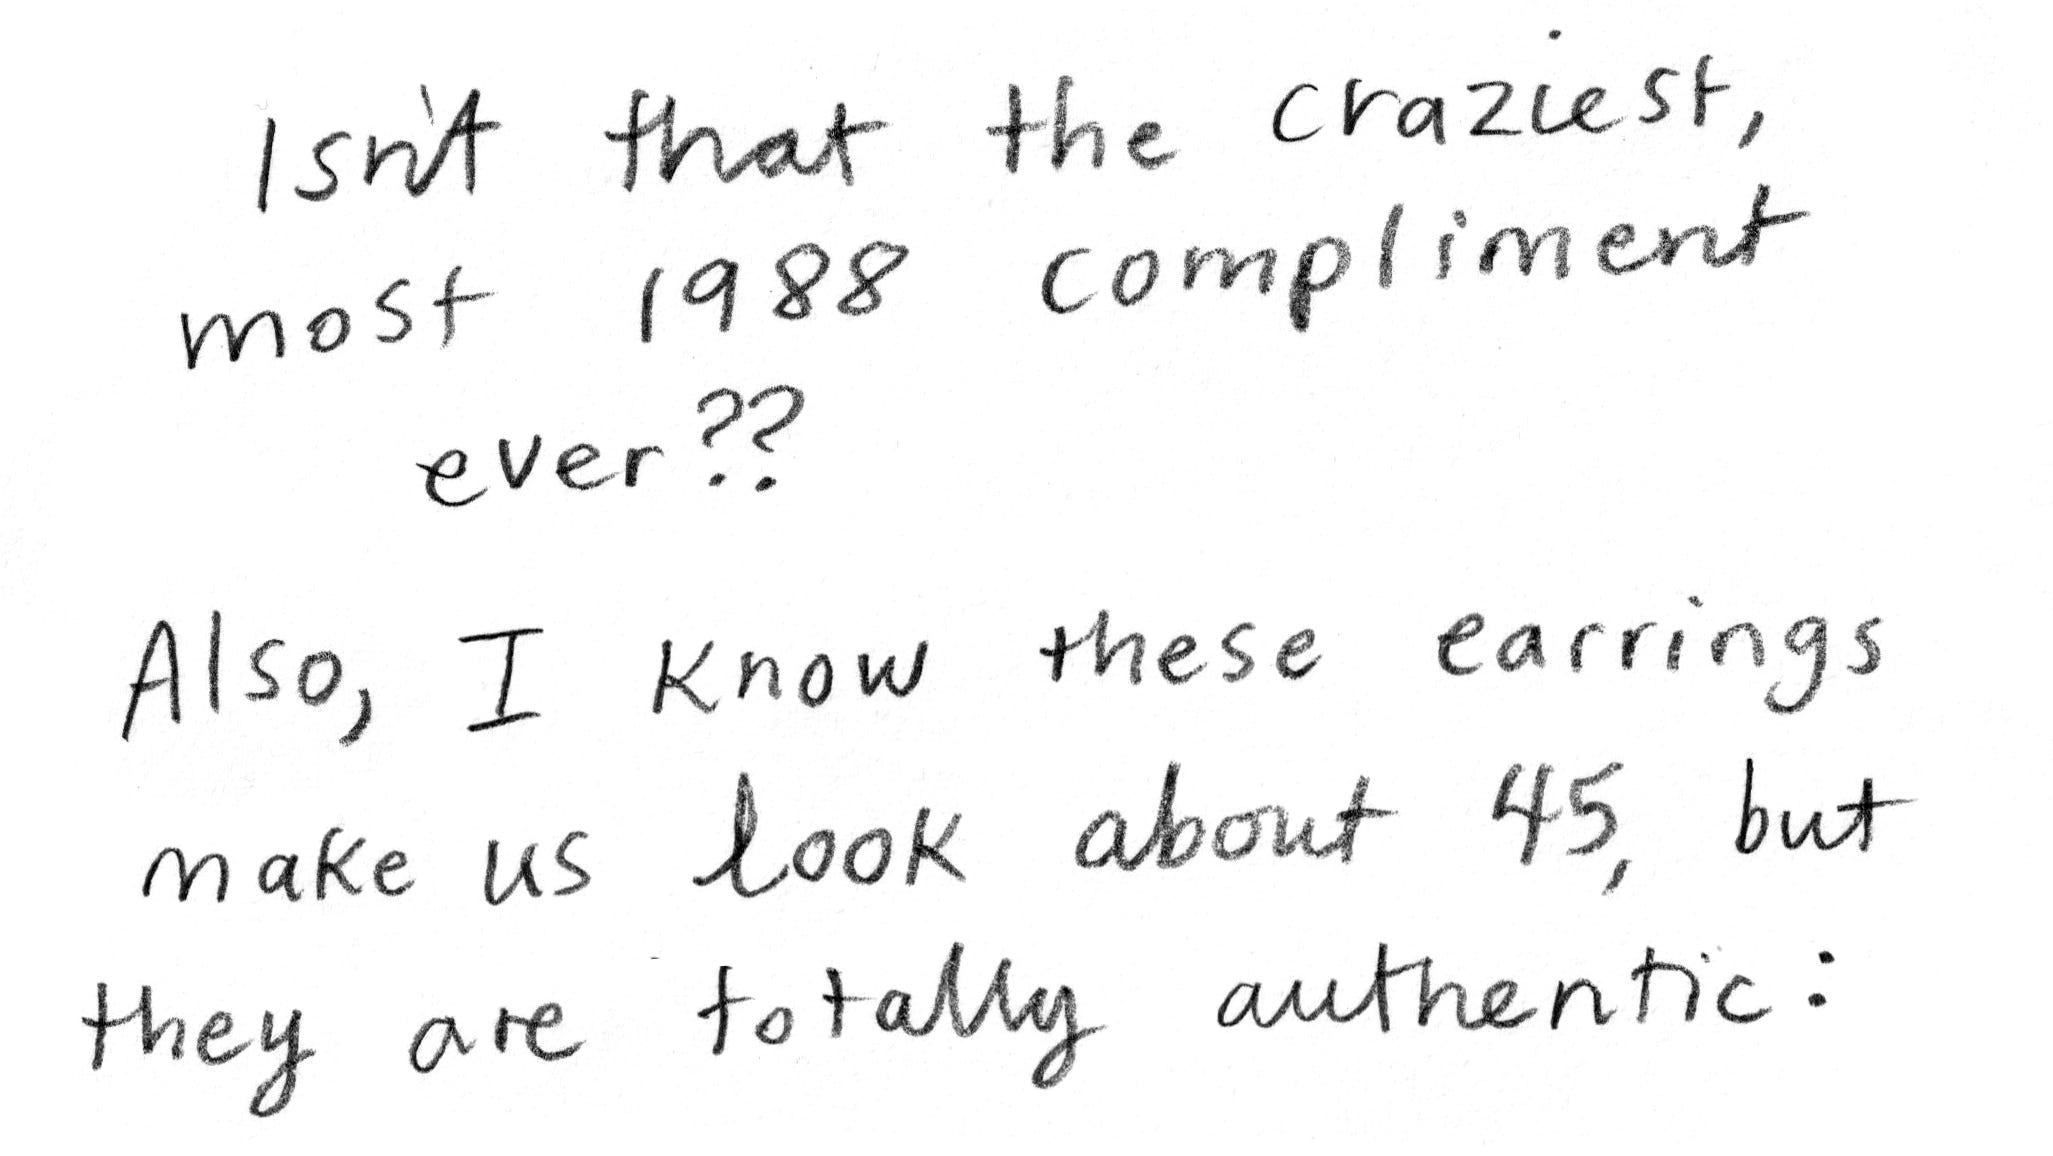 Isn't that the craziest,
most 1988 compliment
ever??
Also, I know these earrings
make us look about 45, but
they are totally authentic: